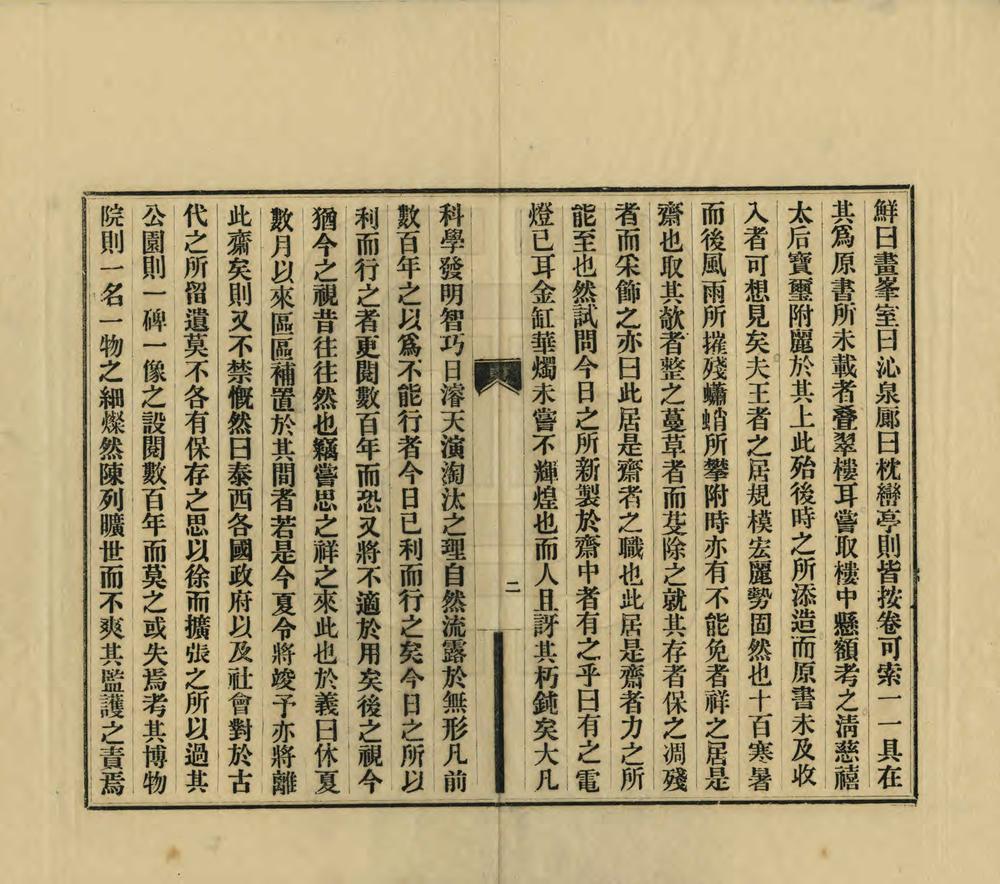 鮮曰畫峯室曰沁泉廊曰枕巒亭則皆按卷可索一一具在
其爲原書所未載者叠翠樓耳嘗取樓中懸額考之淸慈禧
太后寶璽附麗於其上此殆後時之所添造而原書未及收
入者可想見矣夫王者之居規模宏麗勢固然也十百寒暑
而後風雨所摧殘蠨蛸所攀附時亦有不能免者祥之居是
齋也取其欹者整之蔓草者而芟除之就其存者保之凋殘
者而采飾之亦曰此居是齋者之職也此居是齋者力之所
能至也然試問今日之所新製於齋中者有之乎曰有之電
燈已耳金缸華燭未嘗不輝煌也而人且訝其朽鈍矣大凡
二
科學發明智巧日濬天演淘汰之理自然流露於無形凡前
數百年之以爲不能行者今日已利而行之矣今日之所以
利而行之者更閱數百年而恐又將不適於用矣後之視今
猶今之視昔往往然也竊嘗思之祥之來此也於義曰休夏
數月以來區區補置於其間者若是今夏令將竣予亦將離
此齋矣則又不禁慨然曰泰西各國政府以及社會對於古
代之所留遺莫不各有保存之思以徐而擴張之所以過其
公園則一碑一像之設閱數百年而莫之或失焉考其博物
院則一名一物之細燦然陳列曠世而不爽其監護之責焉